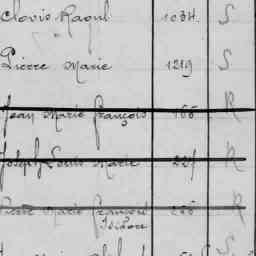 Clovis Raoul 1034. S
Pierre Marie 1219 S
Jean Marie François 166 R
Joseph Louis Marie 221 R
Pierre Marie François 266 R
Isidore
S